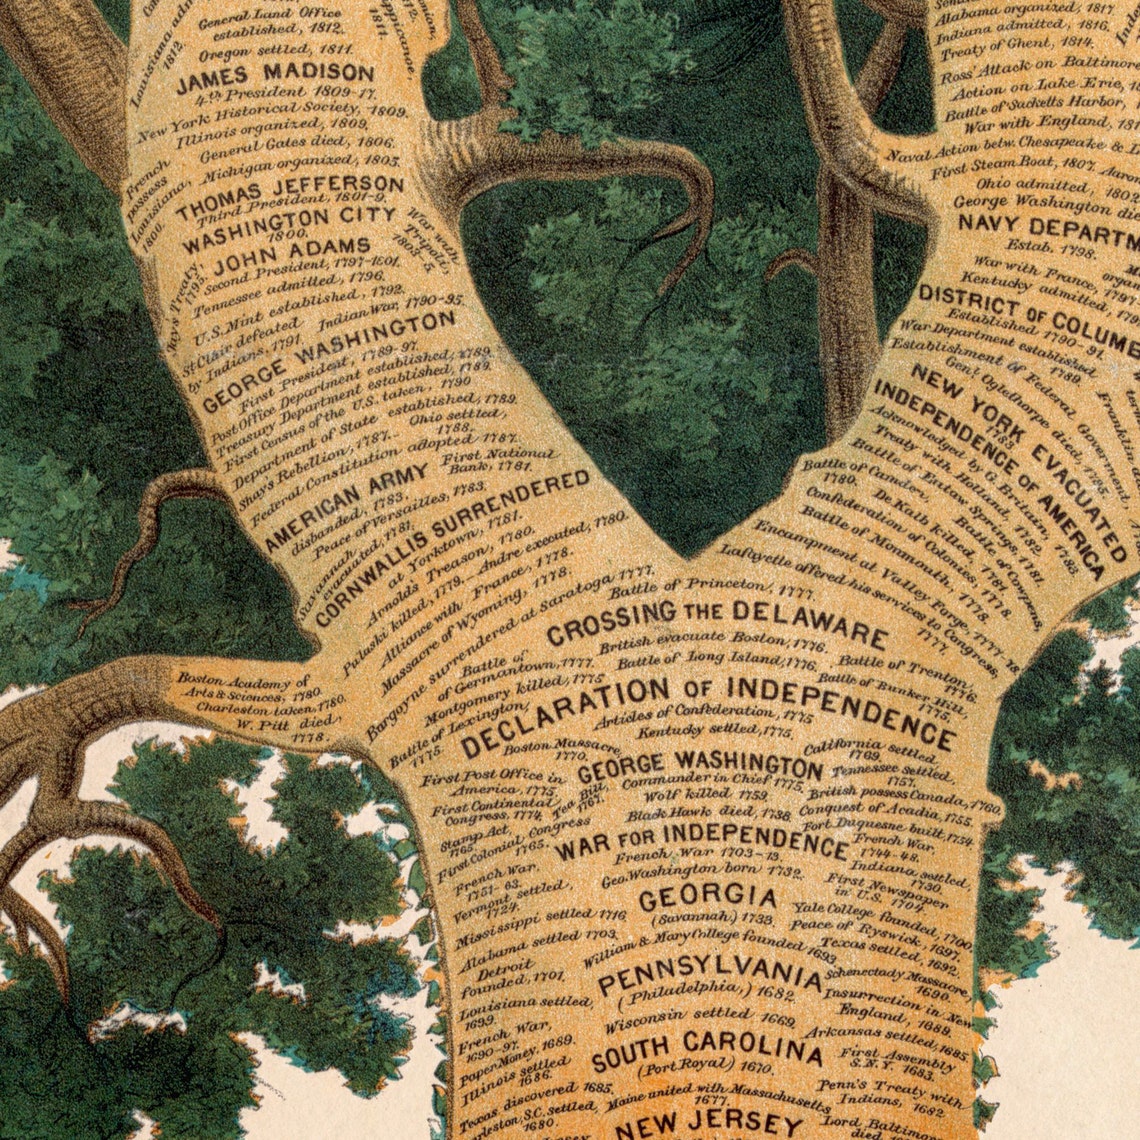 General Land Office
established, 1812.
Oregon settled, 1811.
1812.
1811.
JAMES MADISON
4th President 1809-17.
New York Historical Society, 1809.
Illinois organized, 1809.
General Gates died, 1806.
Michigan organized, 1805.
French
possess
Louisiana,
1800.
THOMAS JEFFERSON
Third President, 1801-9.
WASHINGTON CITY
1800.
JOHN ADAMS
Second President, 1797-1801.
War with
Tripoli,
1803-5.
Jay's Treaty,
1795.
Tennessee admitted, 1796.
U.S. Mint established, 1792.
St Clair defeated
by Indians, 1791.
Indian War, 1790-95.
GEORGE WASHINGTON
First President, 1789-97.
Post Office Department established, 1789.
Treasury Department established, 1789.
First Census of the U.S. taken, 1790
Department of State established, 1789.
Ohio settled,
1788.
Shay's Rebellion, 1787.
Federal Constitution adopted 1787.
First National
Bank, 1781.
AMERICAN ARMY
disbanded, 1783.
Peace of Versailles, 1783.
Savannah
evacuated, 1781.
CORNWALLIS SURRENDERED
at Yorktown, 1781.
Arnold's Treason, 1780.
Pulaski killed, 1779. Andre executed, 1780.
Alliance with France, 1778.
Massacre of Wyoming, 1778.
Burgoyne surrendered at Saratoga 1777.
Alabama organized, 1817
Indiana admitted, 1816.
Treaty of Ghent, 1814.
Ross' Attack on Baltimore
Action on Lake Erie,
Battle of Sacketts Harbor,
War with England,
Naval Action betw. Chesapeake & L
First Steam Boat, 1807.
Aaron
Ohio admitted, 1802
George Washington di
NAVY DEPARTM
Estab. 1798.
War with France,
Kentucky admitted,
DISTRICT OF COLUMB
Established 1790-91.
War Department established,
1789.
Establishment of Federal Government,
Genl Oglethorpe died, 1785.
NEW YORK EVACUATED
1783.
INDEPENDENCE OF AMERICA
Acknowledged by G. Britain, 1783.
Treaty with Holland, 1782
Battle of Eutaw Springs, 1781.
Battle of Camden,
1780.
De Kalb killed,
Battle of Cowpens,
Confederation of Colonies,
Battle of Monmouth, 1778.
Encampment at Valley Forge, 1777-78
Lafayette offered his services to Congress,
1777.
Battle of Princeton, 1777.
CROSSING THE DELAWARE
British evacuate Boston, 1776.
Battle of Trenton,
1776.
Battle of
Germantown, 1777.
Battle of Long Island, 1776.
Battle of Bunker Hill,
1775.
Montgomery killed, 1775
Battle of Lexington,
1775.
DECLARATION OF INDEPENDENCE
Articles of Confederation, 1775
Kentucky settled, 1775.
Boston Academy of
Arts & Sciences, 1780.
Charleston taken, 1780.
W. Pitt died,
1778.
Boston Massacre,
1770.
California settled,
1769.
First Post Office in
America, 1775.
GEORGE WASHINGTON
Commander in Chief 1775.
Tennessee settled,
1757.
First Continental
Congress, 1774.
Tea Bill,
1767.
Wolf killed, 1759.
British possess Canada, 1760.
Conquest of Acadia, 1755.
Stamp Act,
1765.
First Colonial Congress
1765.
Black Hawk died, 1738.
Fort Duquesne built, 1754
WAR FOR INDEPENDENCE
French War,
1744-48.
French War,
1751-63.
French War 1703-13.
Geo. Washington born, 1732.
Indiana settled,
1730.
Vermont settled,
1724.
GEORGIA
(Savannah.) 1733.
First Newspaper
in U.S. 1704.
Mississippi settled 1716.
Yale College founded, 1700.
Alabama settled 1703.
Peace of Ryswick, 1697.
William & Mary College founded
1693.
Texas settled, 1692.
Detroit
founded, 1701.
PENNSYLVANIA
(Philadelphia,) 1682.
Schenectady Massacre,
1690.
Louisiana settled,
1699.
Insurrection in New
England, 1689.
Wisconsin settled 1669.
French War,
1690-97.
Arkansas settled, 1685.
Paper Money, 1689.
SOUTH CAROLINA
(Port Royal) 1670.
First Assembly
S.N.Y. 1683.
Illinois settled
1686.
Texas discovered 1685.
Maine united with Massachusetts
1677.
Penn's Treaty with
Indians, 1682.
S.C. settled,
1680.
NEW JERSEY
Lord Baltimo
died